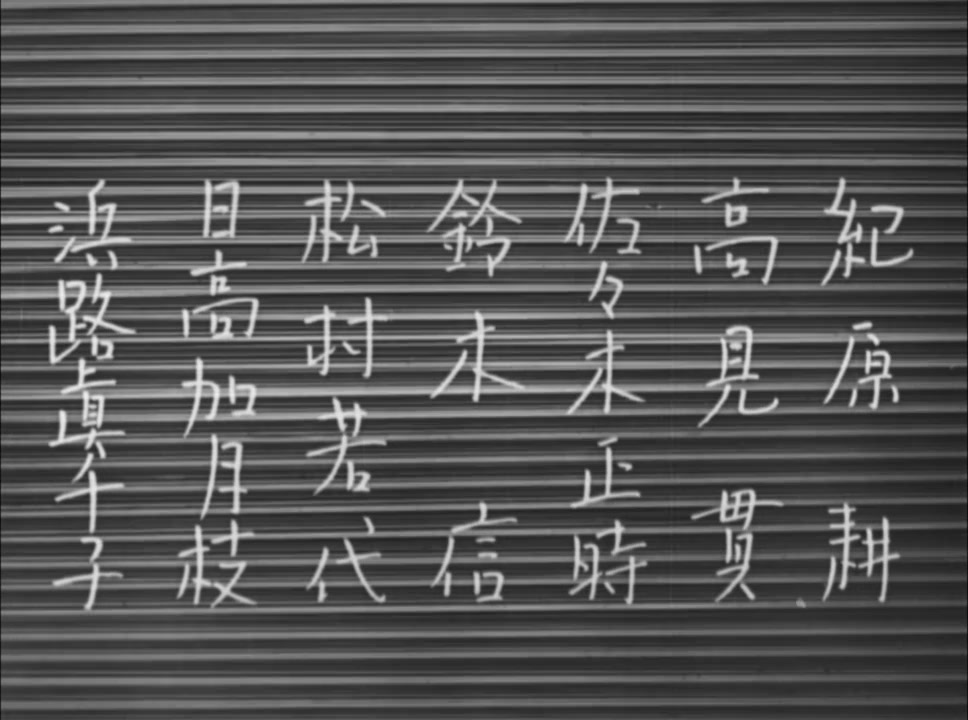 紀原耕
高見貫
佐々木正時
鈴木信
松村若代
日高加月枝
浜路真千子